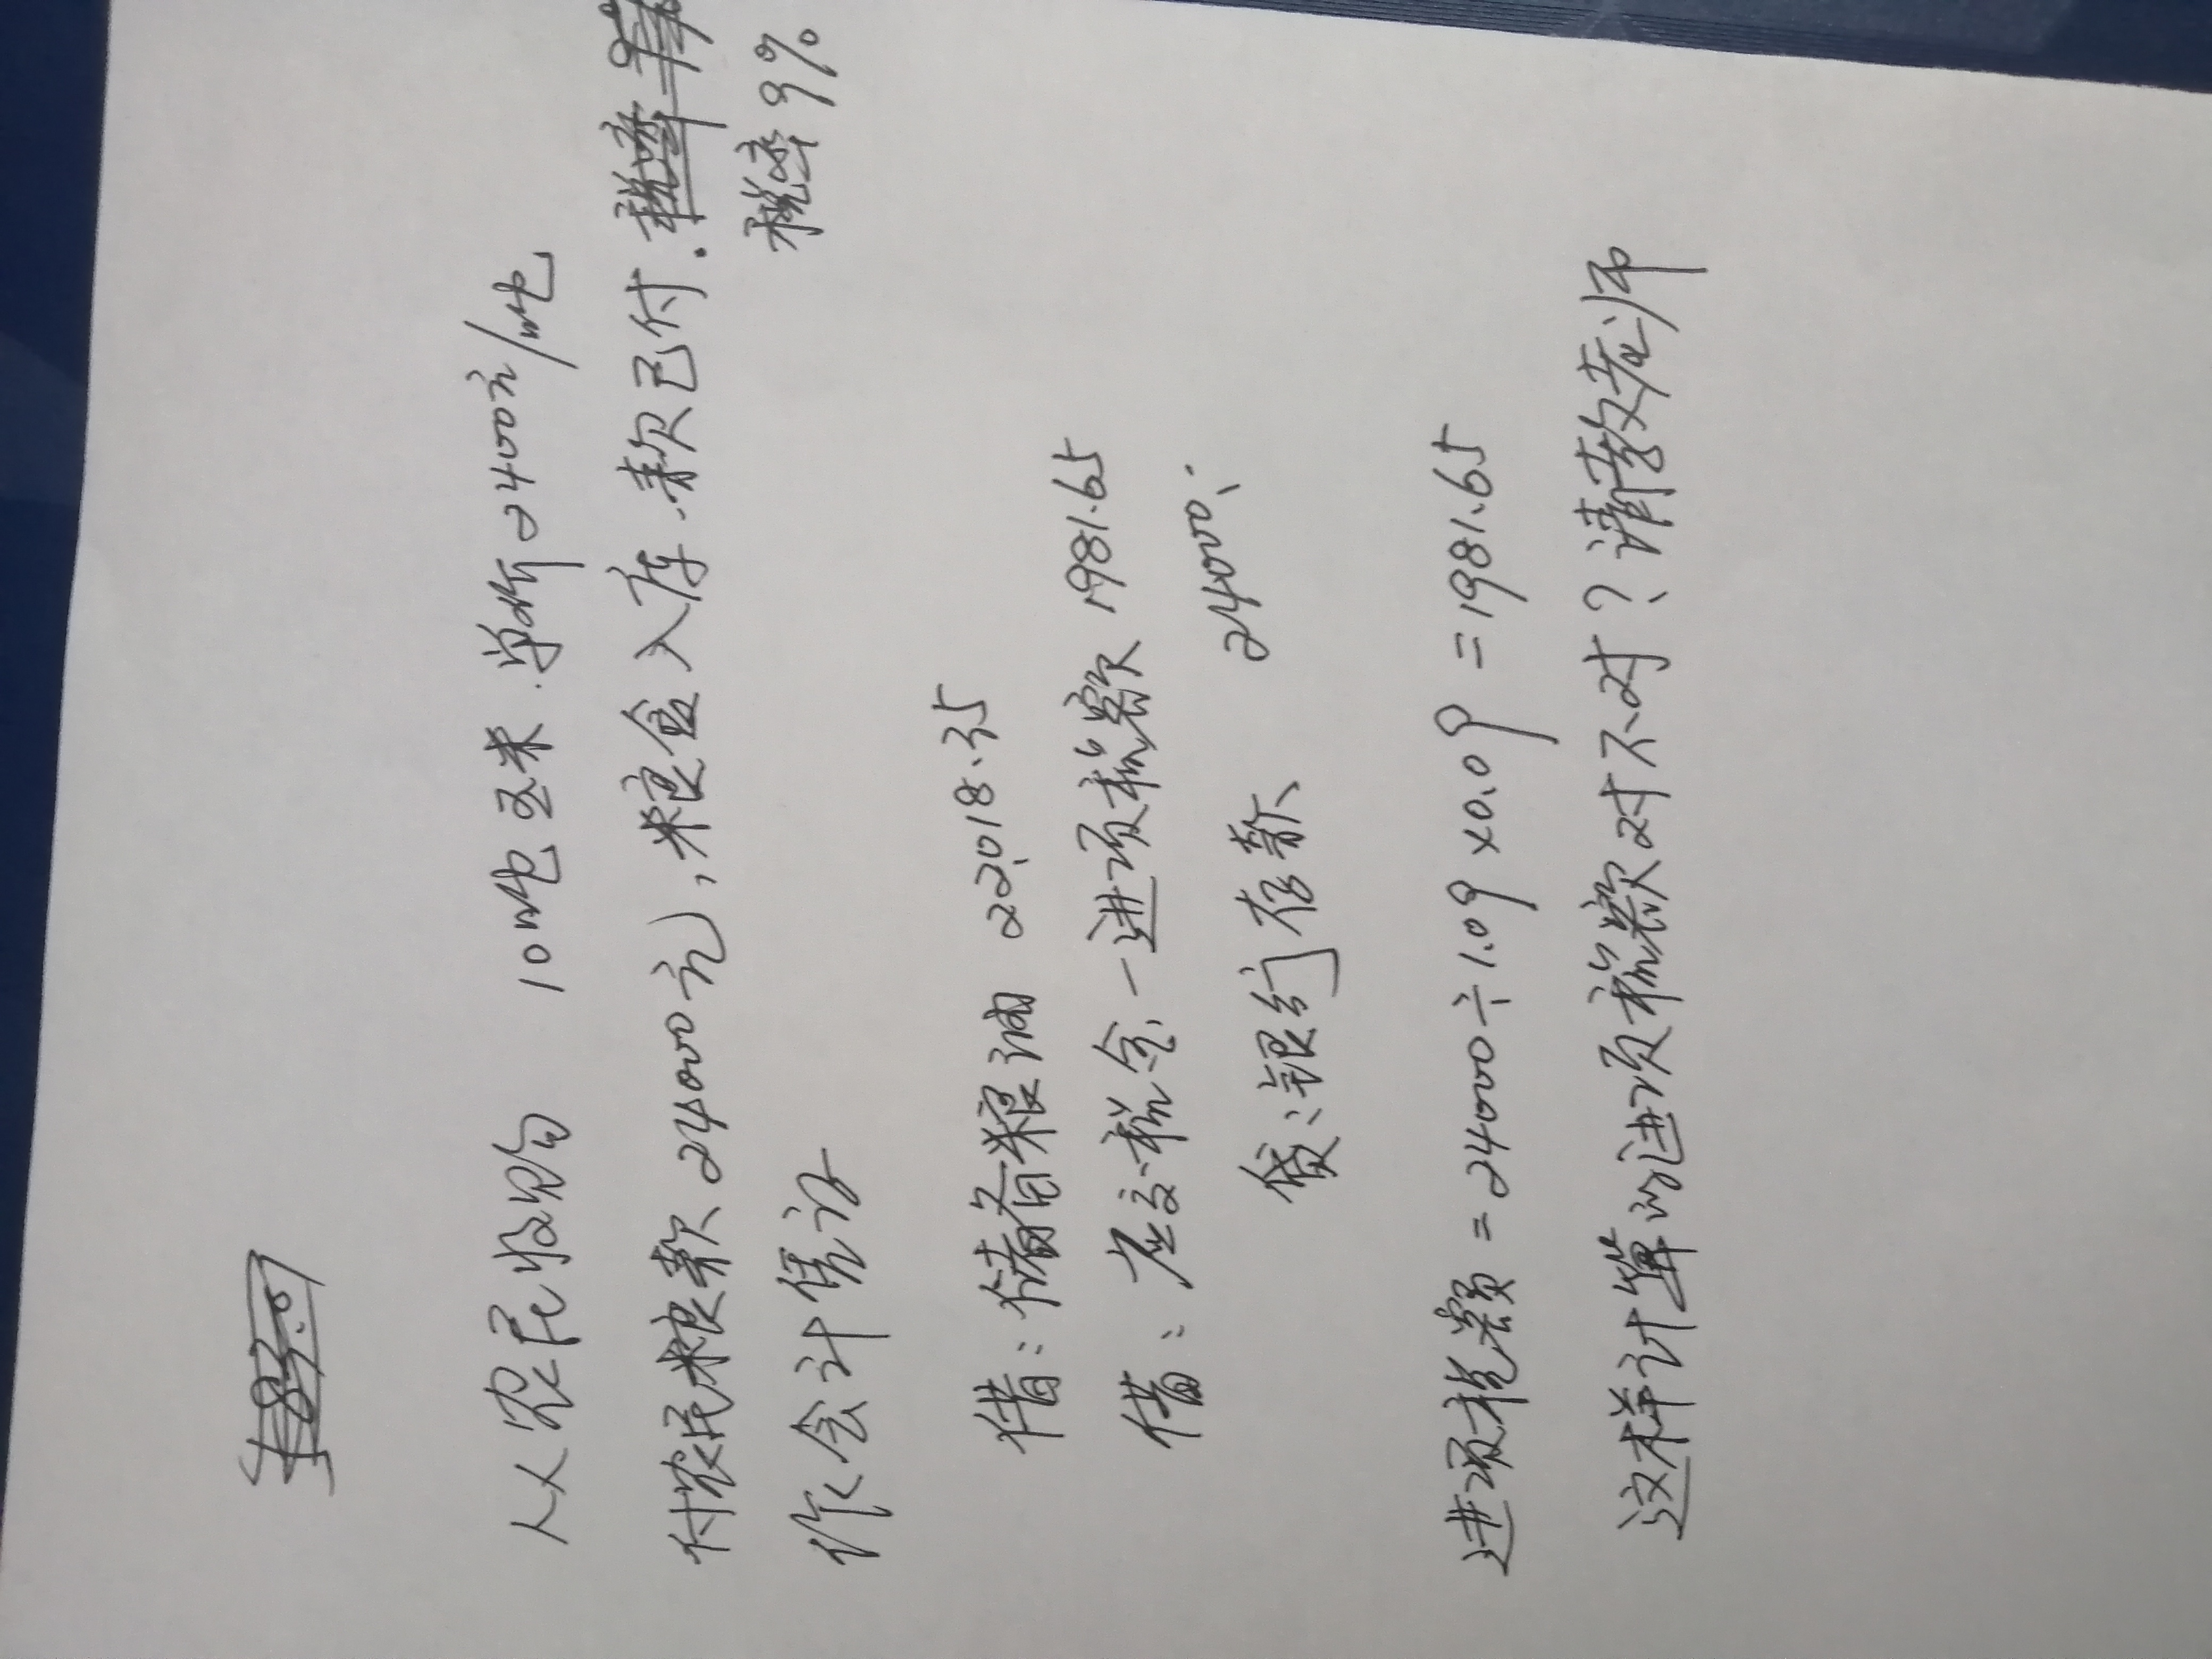 从农民收购 10吨玉米.单价2400元/吨
付农民粮款24000元),粮食入库.款已付.税率
税率9%
作会计凭证
借:储备粮油 22018.35
借:应交税金-进项税额 1981.65
贷:银行存款 24000
进项税额=24000÷1.09×0.09=1981.65
这样计算的进项税额对不对?请教老师